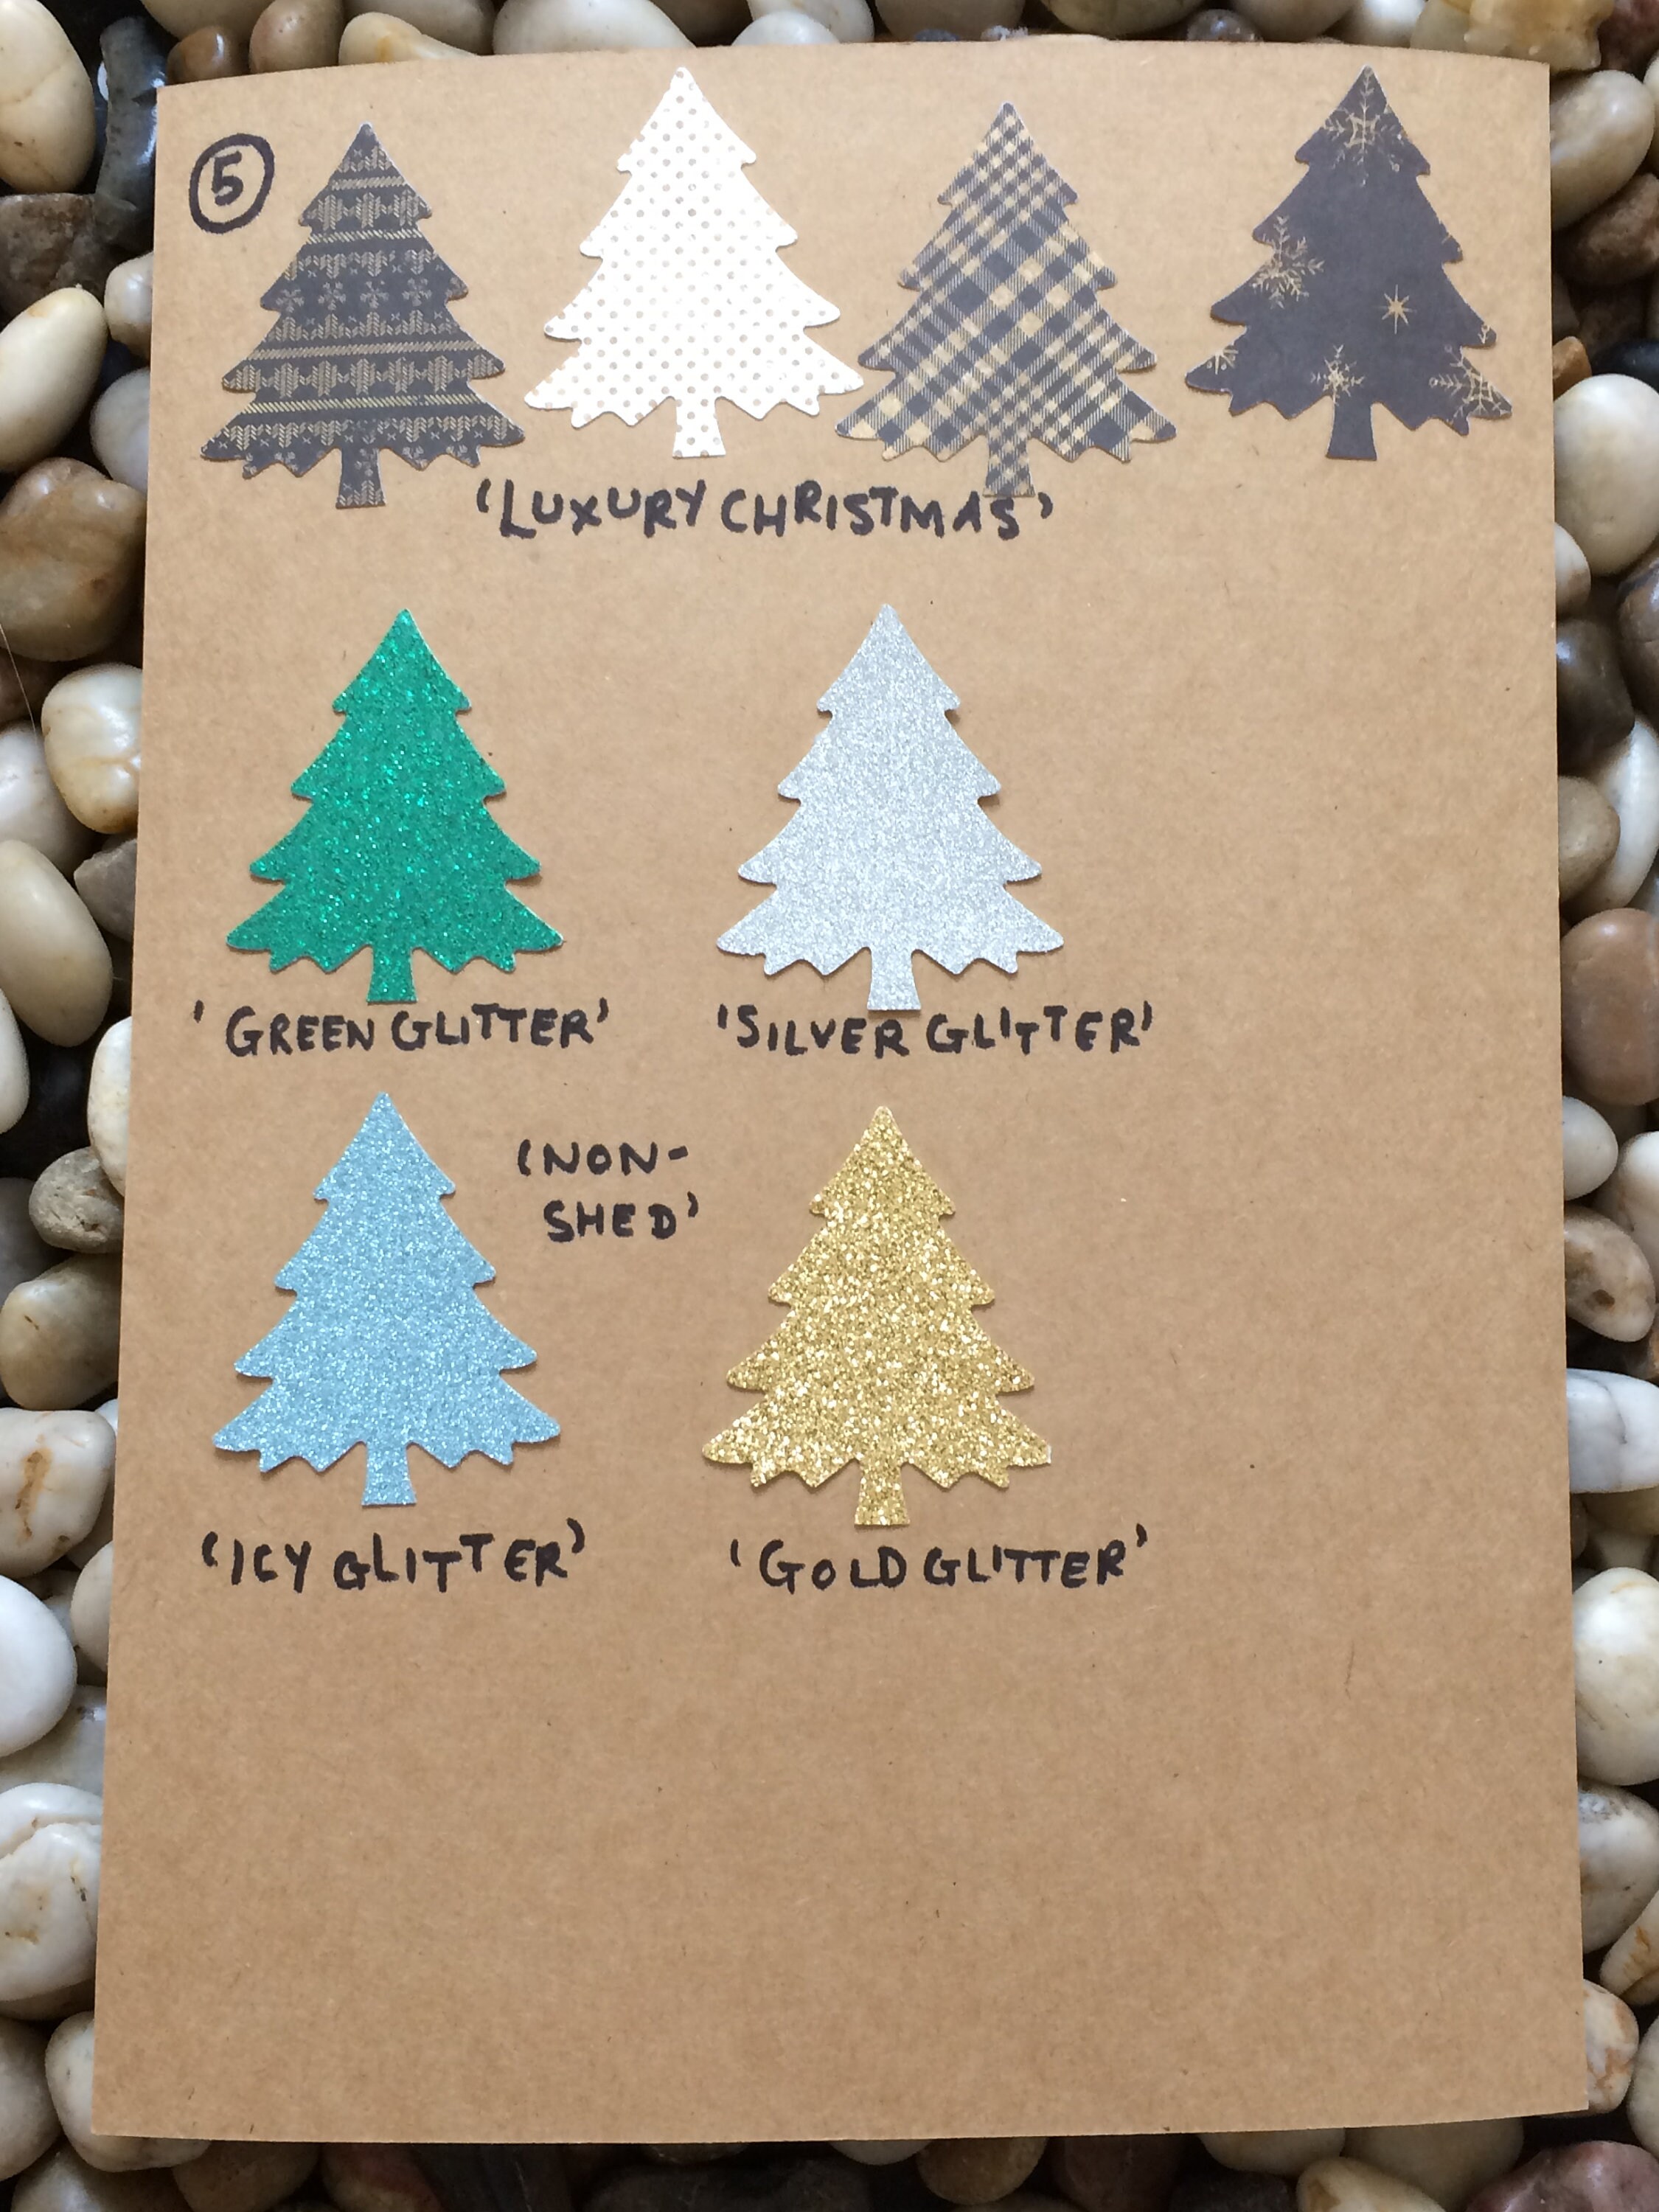 5
'LUXURY CHRISTMAS'
'GREEN GLITTER'
'SILVER GLITTER'
(NON-
SHED'
'ICY GLITTER'
'GOLD GLITTER'